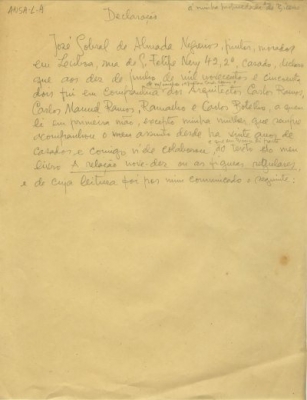 ANSA-L-9
Declaração
José Sobral de Almada Negreiros, pintor, morador
em Lisboa, rua de S. Felipe Nery 49, 2º, casado, declaro
que aos dez de junho de mil novecentos e cincoenta
dois fui em companhia dos Arquitectos Carlos Ramos,
Carlos Manuel Ramos, Ramalho e Carlos Botelho, a quem
li em primeira mão, excepto minha mulher que sempre
acompanhou o meu assunto desde há vinte anos de
casados, e comigo nele colaborou, do texto do meu
livro a relação nove-dez ou as figuras regulares
e de cuja leitura foi por mim comunicado o seguinte: